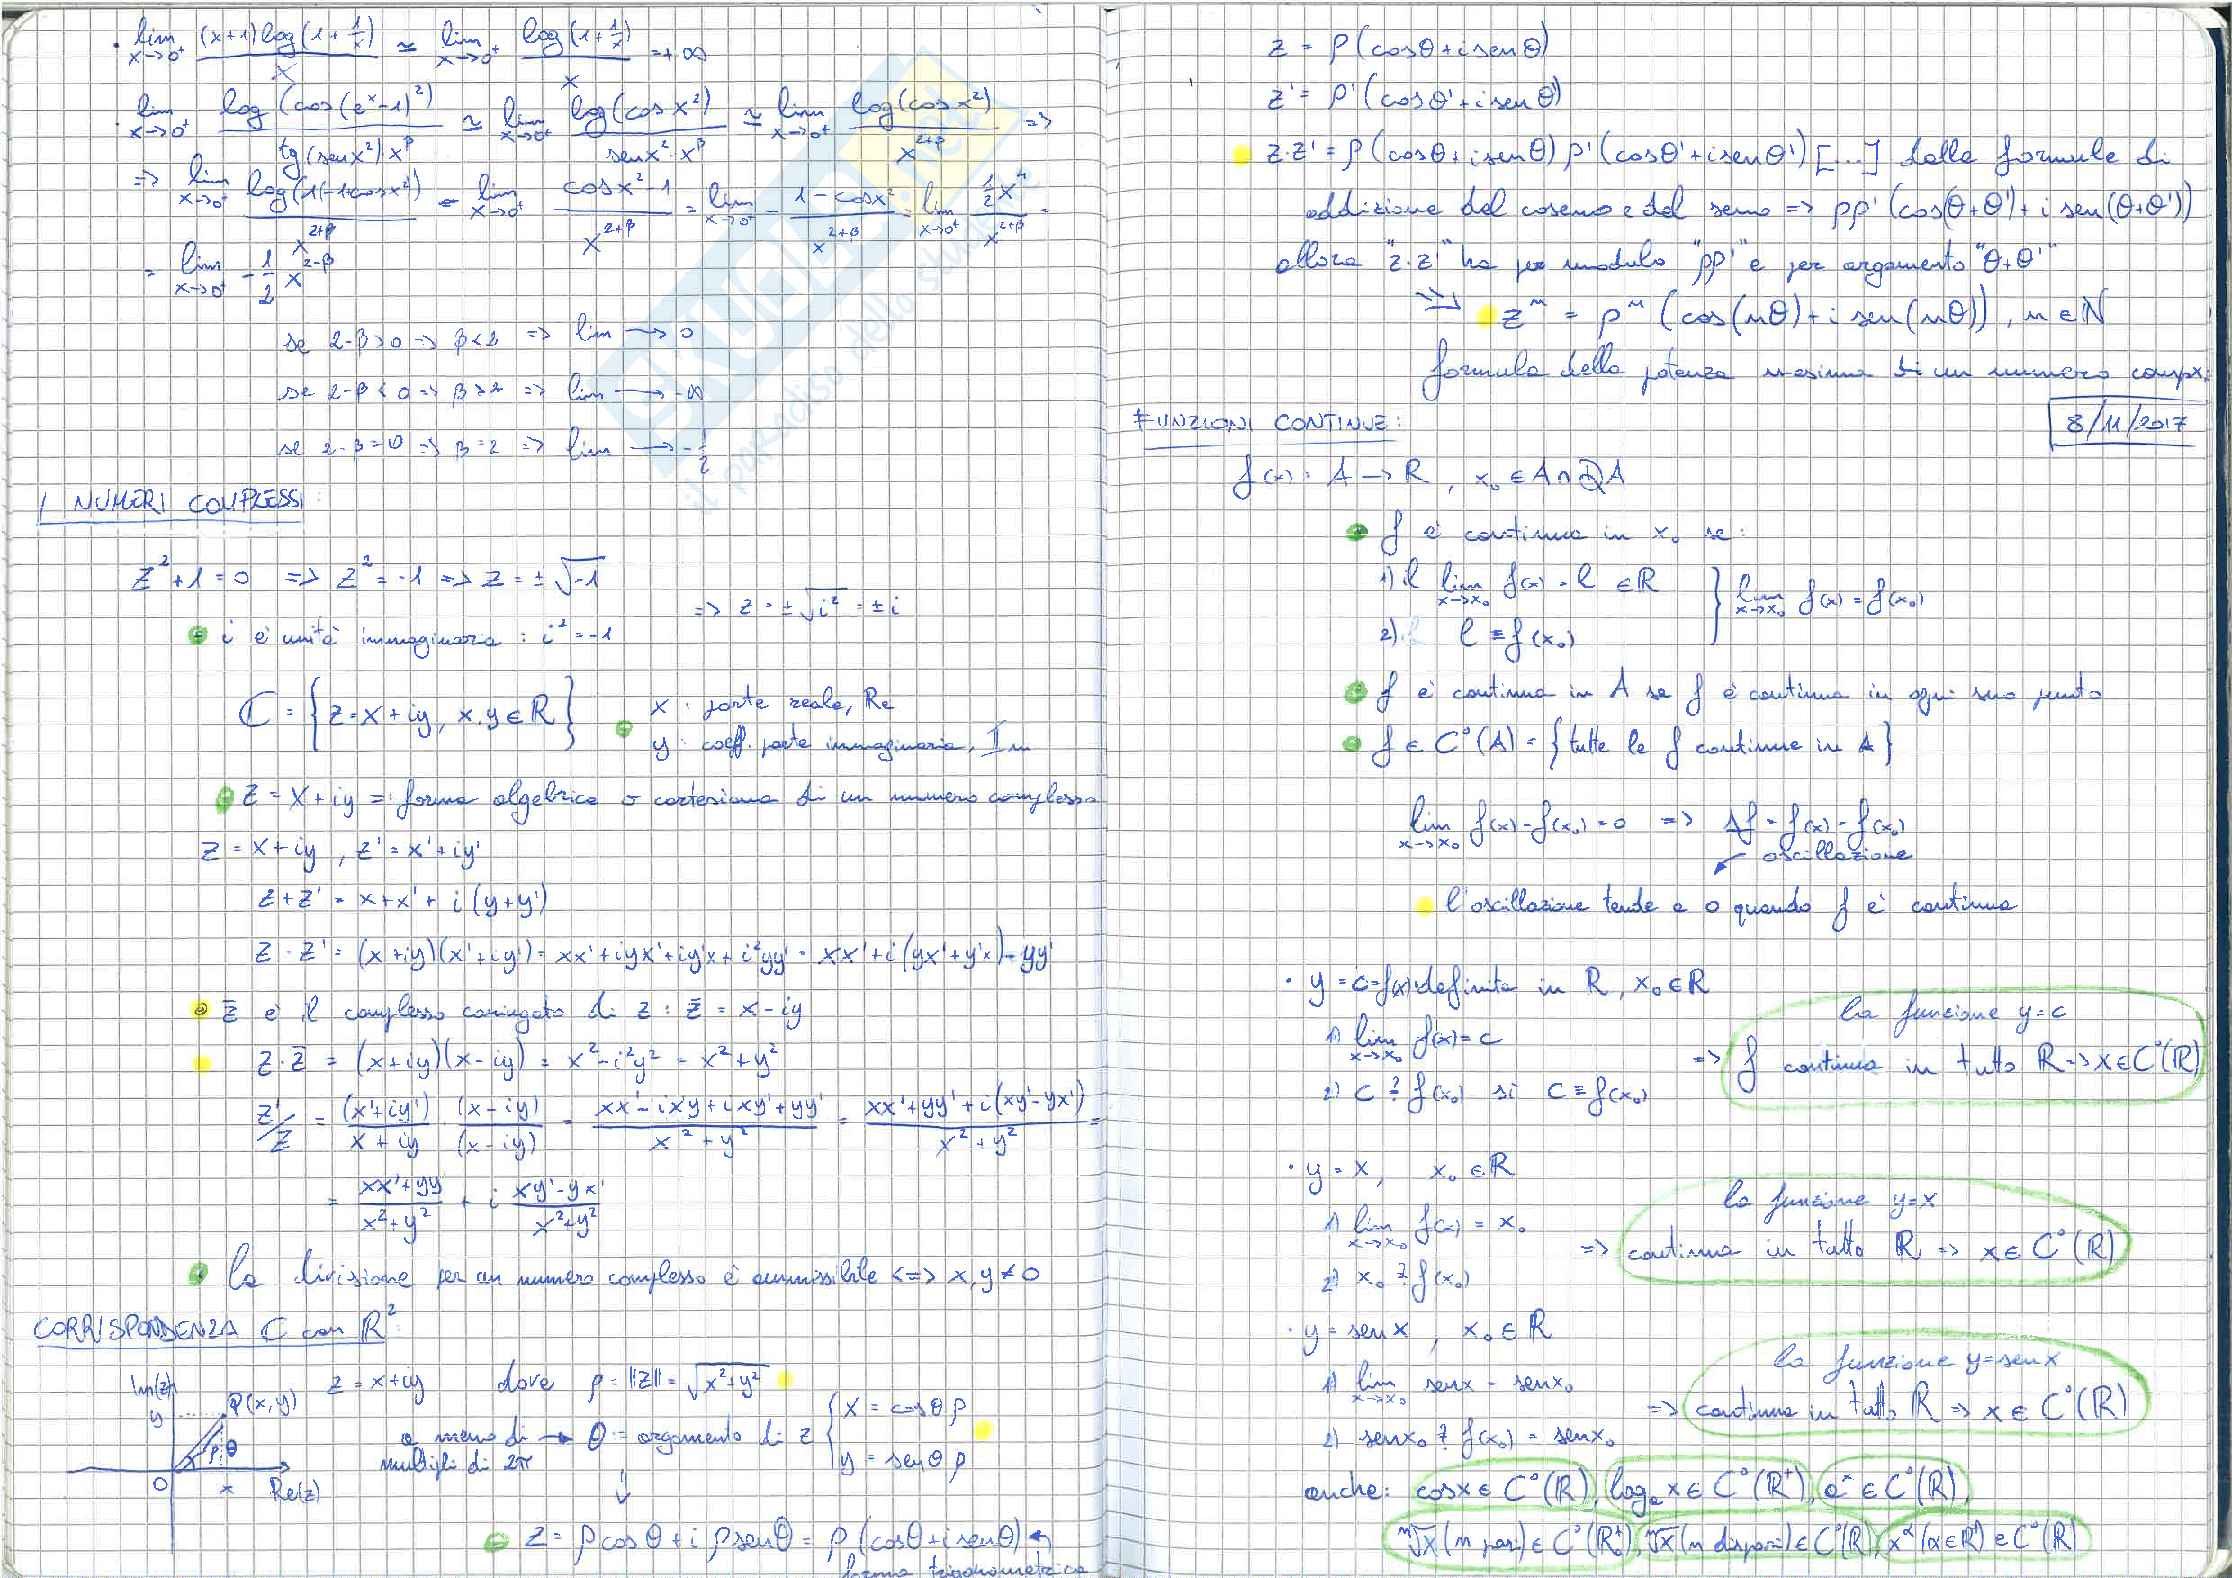 · lim x→0⁺ (x+1)log(1+1/x) / x ≃ lim x→0⁺ log(1+1/x) / x = +∞
· lim x→0⁺ log(cos(eˣ-1)²) / tg(senx²)·x^β ≃ lim x→0⁺ log(cosx²) / senx²·x^β ≃ lim x→0⁺ log(cosx²) / x^(2+β) =>
=> lim x→0⁺ log(1-1+cosx²) / x^(2+β) = lim x→0⁺ cosx²-1 / x^(2+β) = lim x→0⁺ - 1-cosx² / x^(2+β) = lim x→0⁺ ½x⁴ / x^(2+β) =
= lim x→0⁺ -1/2 x^(2-β)
se 2-β>0 => β<2 => lim → 0
se 2-β<0 => β>2 => lim → -∞
se 2-β=0 => β=2 => lim → -1/2
I NUMERI COMPLESSI:
z²+1=0 => z²=-1 => z=±√-1
=> z=±√i² = ±i
i è unità immaginaria : i²=-1
ℂ = {z=x+iy, x,y∈ℝ}
x: parte reale, Re
y: coeff. parte immaginaria, Im
z=x+iy =: forma algebrica o cartesiana di un numero complesso
z=x+iy, z'=x'+iy'
z+z' = x+x'+i(y+y')
z·z' = (x+iy)(x'+iy') = xx'+iyx'+iy'x+i²yy' = xx'+i(yx'+y'x)-yy'
z̄ è il complesso coniugato di z : z̄ = x-iy
z·z̄ = (x+iy)(x-iy) = x²-i²y² = x²+y²
z'/z = (x'+iy')/(x+iy) · (x-iy)/(x-iy) = (xx'-ix'y+ixy'+yy')/(x²+y²) = (xx'+yy'+i(xy'-yx'))/(x²+y²) =
= (xx'+yy')/(x²+y²) + i (xy'-yx')/(x²+y²)
la divisione per un numero complesso è ammissibile <=> x,y≠0
CORRISPONDENZA ℂ con ℝ²:
Im(z)
y
P(x,y)
ρ θ
O x Re(z)
z=x+iy dove ρ=||z||=√x²+y²
a meno di multipli di 2π → θ = argomento di z { x = cosθ ρ
y = senθ ρ
z=ρcosθ+iρsenθ = ρ(cosθ+isenθ)
forma trigonometrica
z = ρ(cosθ+isenθ)
z' = ρ'(cosθ'+isenθ)
z·z' = ρ(cosθ+isenθ)ρ'(cosθ'+isenθ') [...] dalle formule di
addizione del coseno e del seno => ρρ'(cos(θ+θ')+isen(θ+θ'))
allora "z·z'" ha per modulo "ρρ'" e per argomento "θ+θ'"
=> zⁿ = ρⁿ(cos(nθ)+isen(nθ)), n∈ℕ
formula della potenza nesima di un numero compx.
FUNZIONI CONTINUE:
8/11/2017
f(x): A→ℝ, x₀∈A∩DA
f è continua in x₀ se:
1) il lim x→x₀ f(x)=l ∈ℝ
2) l≡f(x₀)
} lim x→x₀ f(x)=f(x₀)
f è continua in A se f è continua in ogni suo punto
f∈C°(A) = {tutte le f continue in A}
lim x→x₀ f(x)-f(x₀)=0 => Δf=f(x)-f(x₀)
oscillazione
l'oscillazione tende a 0 quando f è continua
· y=c=f(x) definita in ℝ, x₀∈ℝ
1) lim x→x₀ f(x)=c
2) c ≟ f(x₀) sì c≡f(x₀)
la funzione y=c
=> f continua in tutto ℝ => x∈C°(ℝ)
· y=x, x₀∈ℝ
1) lim x→x₀ f(x) = x₀
2) x₀ ≟ f(x₀)
la funzione y=x
=> continua in tutto ℝ => x∈C°(ℝ)
· y=senx, x₀∈ℝ
1) lim x→x₀ senx = senx₀
2) senx₀ ≟ f(x₀) = senx₀
la funzione y=senx
=> continua in tutto ℝ => x∈C°(ℝ)
anche: cosx∈C°(ℝ), logₐx∈C°(ℝ⁺), aˣ∈C°(ℝ),
ⁿ√x (n pari)∈C°(ℝ⁺), ⁿ√x (n dispari)∈C°(ℝ), x^α (α∈ℝ) ∈C°(ℝ)
SKUOLA.net
il paradiso dello studente